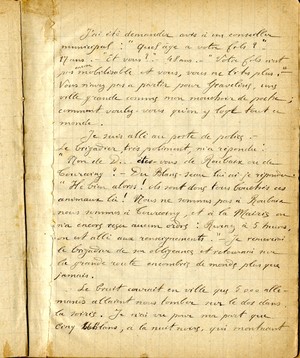 J'ai été demander avis à un conseiller
municipal : "Quel âge a votre fils ? -
17 ans. - Et vous ? - 48 ans. - Votre fils n'est
pas mobilisable et vous, vous ne l'êtes plus. -
Vous n'avez pas à partir pour Gravelines, une
ville grande comme mon mouchoir de poche ;
comment voulez-vous qu'on y loge tout le
monde.
Je suis allé au poste de police -
Le brigadier, très poliment, m'a répondu :
"Nom de D... êtes-vous de Roubaix ou de
Tourcoing ? - Du Blanc-Seau lui ai-je répondu :
"Hé bien alors ! ils sont donc tous
animaux-là ! Nous ne sommes pas à Roubaix
nous sommes à Tourcoing, et à la Mairie on
n'a encore reçu aucun ordre ! Revenez à 5 heures,
on est allé aux renseignements. - Je remerciai
le brigadier de son obligeance et retournai sur
la grande route encombrée de monde plus que
jamais.
Le bruit courait en ville que 5000 alle-
mands allaient nous tomber sur le dos dans
la soirée. Je n'ai vu pour ma part que
cinq uhlans, à la nuit noire, qui montraient